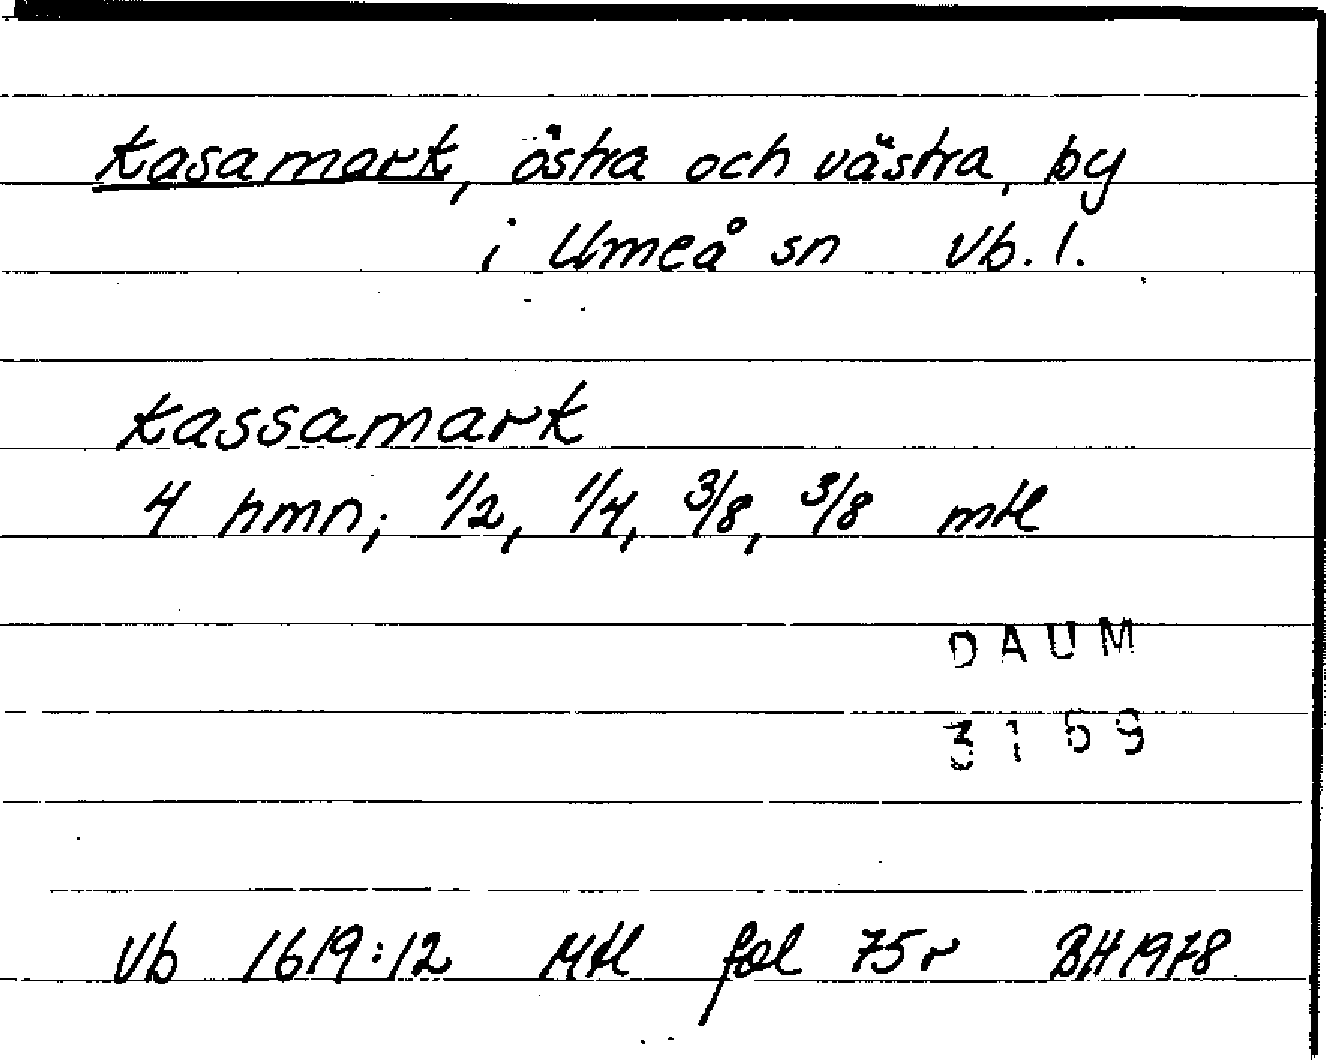 Kasamark, östra och västra, by
i Umeå sn Vb. l.
Kassamark
4 hmn; 1/2, 1/4, 3/8, 3/8 mtl
DAUM
3159
Vb 1619:12 Mtl fol 75r BH 1978